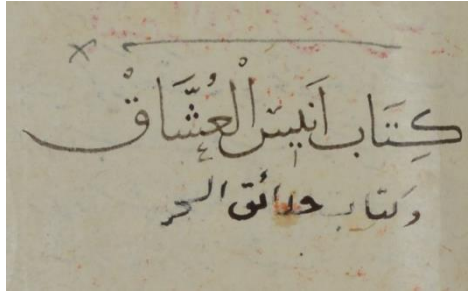 كِتَاب اَنيسْ الْعُشَّاقْ
وكتاب حدائق السحر